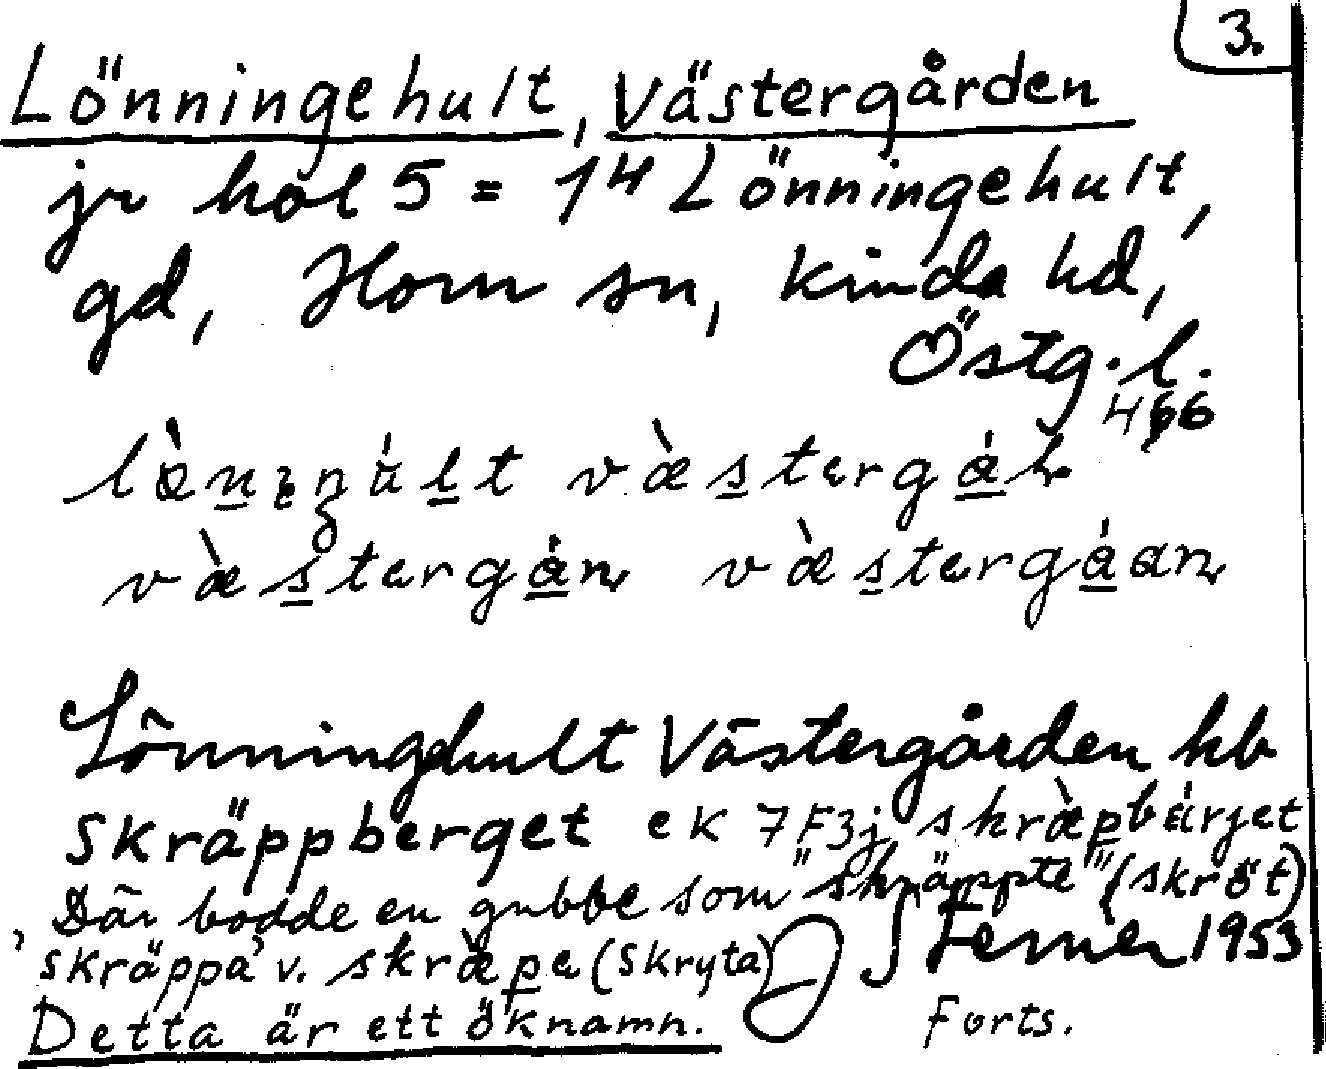 3.
Lönningehult, Västergården
jr hol 5 = 14 Lönningehult,
gd, Horn sn, Kinda hd,
Östg. l.
västergån västergåan
Lönningehult Västergården hb
Skräppberget ek 7F3j skræpbärjet
Där bodde en gubbe som "skräppte" (skröt)
'skräppa' v. skræpa (skryta)
J Ferner 1953
Detta är ett öknamn.
Forts.